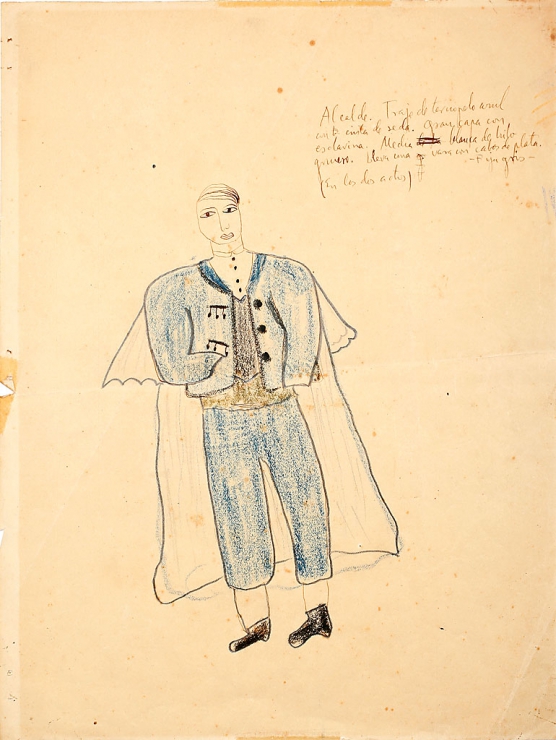 Alcalde. Traje de terciopelo azul
cinta de seda. Gran capa con
esclavina. Media blanca de hilo
grueso. Lleva una vara con cabos de plata.
(En los dos actos)